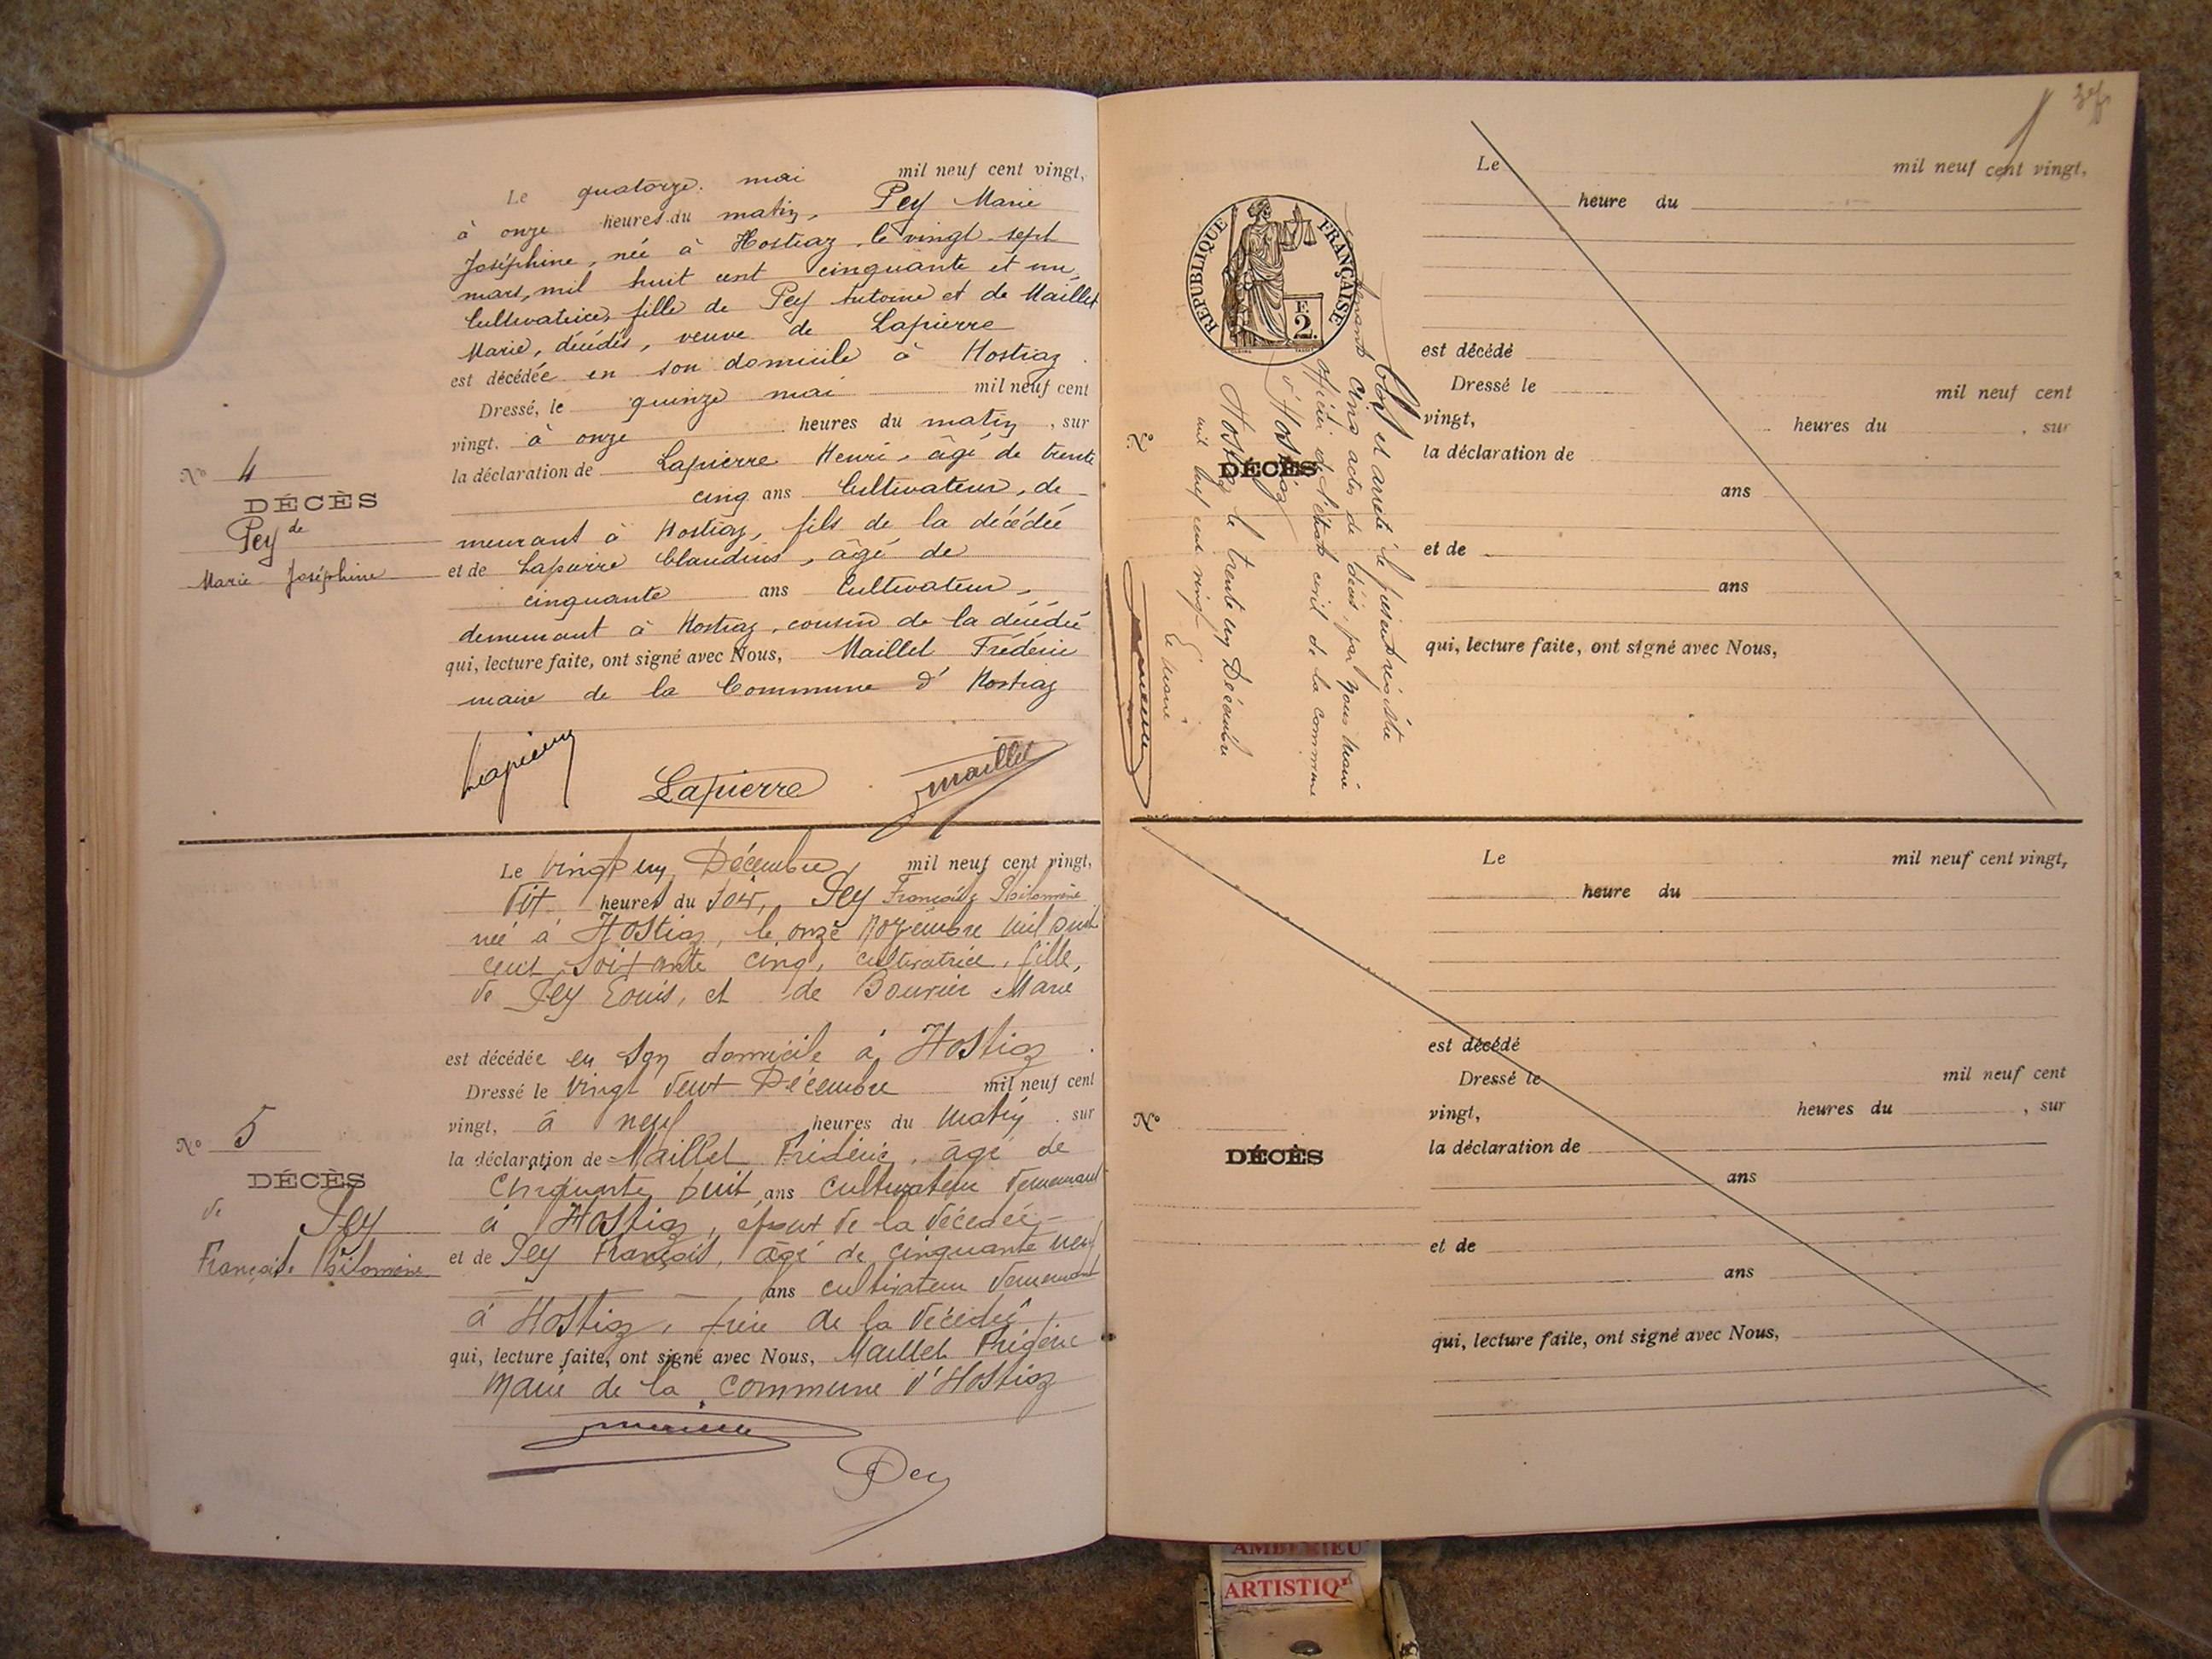 Le quatorze mai mil neuf cent vingt,
à onze heures du matin, Pey Marie
Joséphine, née à Hostiaz, le vingt-sept
mars, mil huit cent cinquante et un,
Cultivatrice, fille de Pey Antoine et de Maillet
Marie, décédés, veuve de Lapierre
est décédée en son domicile à Hostiaz.
Dressé, le quinze mai mil neuf cent
vingt, à onze heures du matin, sur
la déclaration de Lapierre Henri, âgé de trente
cinq ans Cultivateur, de-
N° 4
DÉCÈS
de
Pey
Marie Joséphine
meurant à Hostiaz, fils de la décédée
et de Lapierre Claudius, âgé de
cinquante ans Cultivateur,
demeurant à Hostiaz, cousin de la décédée
qui, lecture faite, ont signé avec Nous, Maillet Frédéric
maire de la Commune d'Hostiaz
Lapierre
Lapierre
Maillet
Le vingt un Décembre mil neuf cent vingt,
heures du soir, Pey Françoise Philomène
née à Hostiaz, le onze Novembre mil huit
cent soixante cinq, cultivatrice, fille,
de Pey Louis, et de Bourrier Marie
est décédée en son domicile à Hostiaz.
Dressé le vingt deux Décembre mil neuf cent
vingt, à neuf heures du matin, sur
N° 5
DÉCÈS
de Pey
Françoise Philomène
la déclaration de Maillet Frédéric, âgé de
Cinquante huit ans cultivateur demeurant
à Hostiaz, époux de la décédée-
et de Pey François, âgé de cinquante neuf
ans cultivateur demeurant
à Hostiaz, frère de la décédée
qui, lecture faite, ont signé avec Nous, Maillet Frédéric
Maire de la commune d'Hostiaz
Pey
REPUBLIQUE FRANÇAISE
F.
2.
Clos et arrêté le présent registre
cinq actes de décès, par Nous Maire
officier de l'état civil de la commune
d'Hostiaz
Hostiaz le trente un Décembre
mil neuf cent vingt
Le Maire
Le mil neuf cent vingt,
heure du
est décédé
Dressé le mil neuf cent
vingt, heures du , sur
N°
DÉCÈS
la déclaration de
ans
et de
ans
qui, lecture faite, ont signé avec Nous,
Le mil neuf cent vingt,
heure du
est décédé
Dressé le mil neuf cent
vingt, heures du , sur
N°
DÉCÈS
la déclaration de
ans
et de
ans
qui, lecture faite, ont signé avec Nous,
AMBERIEU
ARTISTIQ